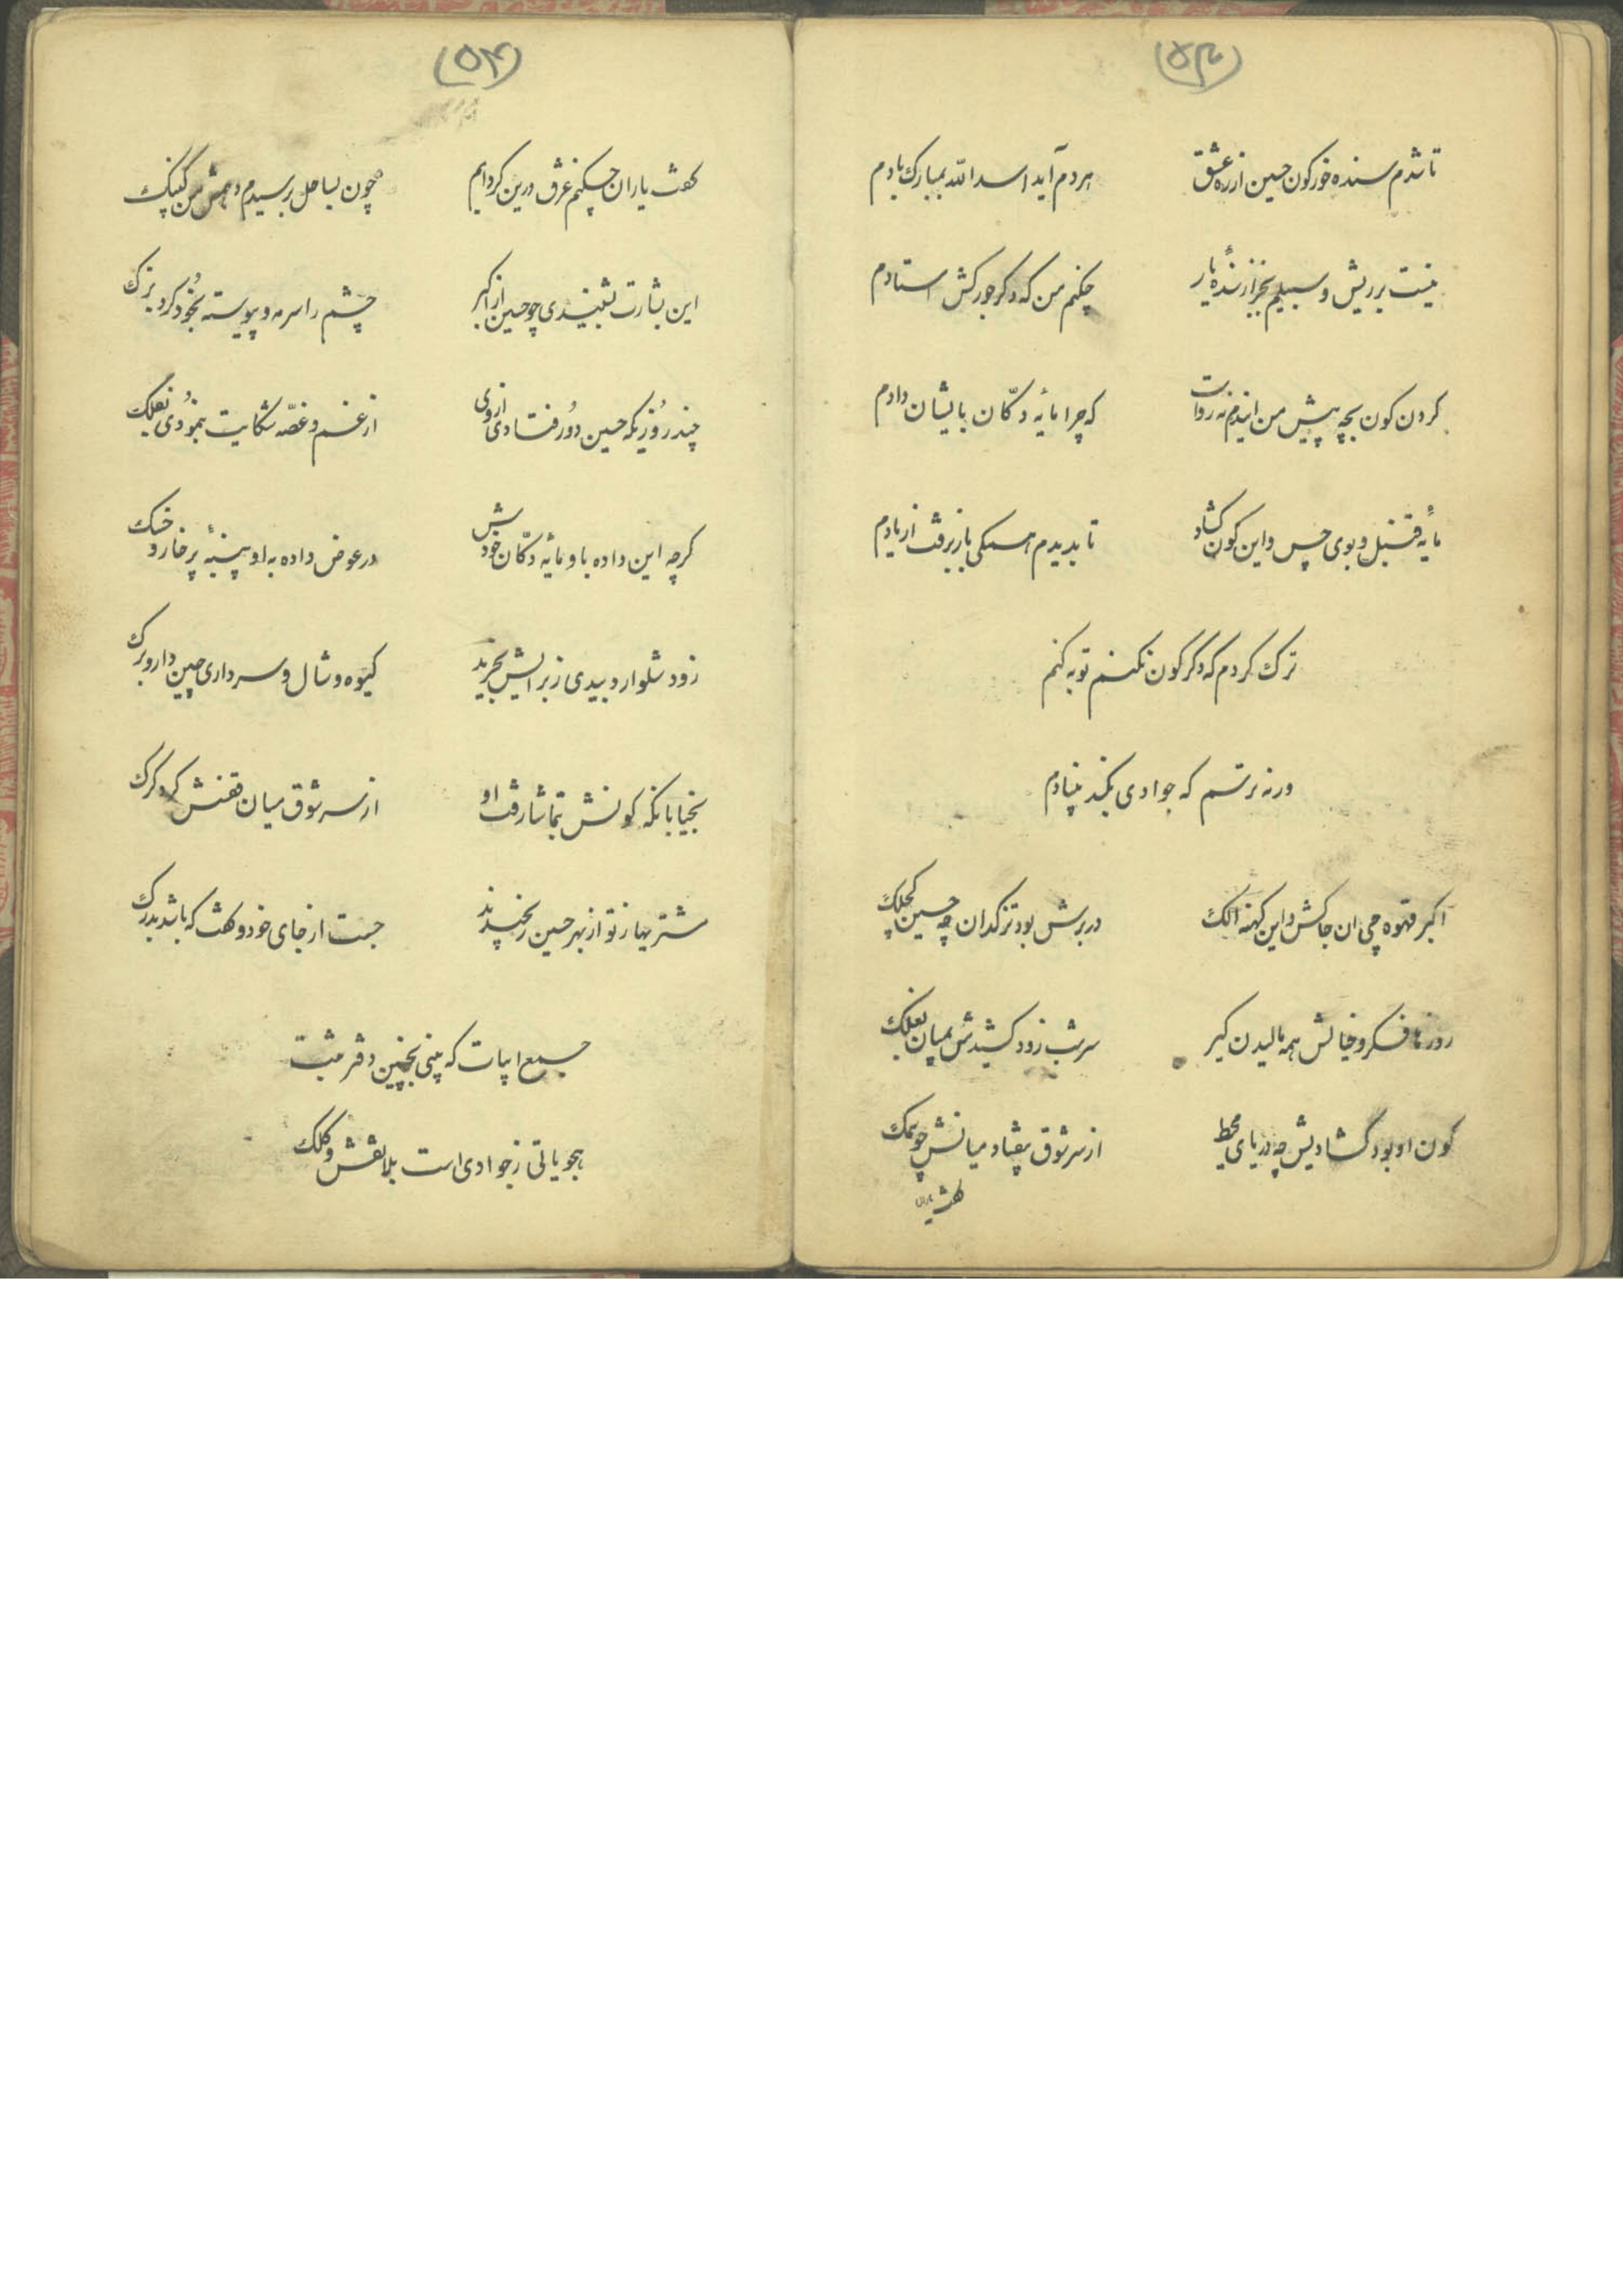 (۵۳)
تا شدم سنده خور کون حسین از ره عشق
هر دم آید اسد الله بمبارک بادم
نیست بر ریش و سبیلم بجز از سندهٔ یار
چکنم من که دگر جورکش استادم
که چرا مایه دکان بایشان دادم
مایه قنبل و بوی چس و این کون گشاد
تا بدیدم همگی باز برفت از یادم
ترک کردم که دگر کون نکنم توبه کنم
ورنه ترسم که جوادی بکند بنیادم
اکبر قهوه چی ان جاکش و این کهنه الک
در برش بود ترکدان چه حسین کچلک
روزها فکر و خیالش همه مالیدن کیر
سر شب زود کشیدش بمیان بغلک
کون او بود گشادیش چه دریای محیط
از سر شوق بیفتاد میانش چو نمک
گفت یاران
(۵۴)
گفت یاران چکنم غرق درین کرده‌ایم
چون بساحل برسیدم
این بشارت بشنیدی چو حسین از اکبر
چشم را سرمه و پیوسته بخود کرد بزک
چند روزیکه حسین دور فتادی از وی
از غم و غصه شکایت بنمودی بفلک
گرچه این داده باو مایه دکان خودش
در عوض داده به او پنبهٔ پر خار و خسک
زود شلوار دبیدی ز برایش بخرید
گیوه و شال و سرداری چین دار و برک
بخیابانکه کونش بتماشا رفت او
از سر شوق میان قفنش کرد کرک
مشتریها ز نو از بهر حسین رنجیدند
جست از جای خود و گفت که باشد بدرک
جمیع ابیات که بینی بچنین دفتر ثبت
هجویاتی ز جوادی است بلا نقش و کلک